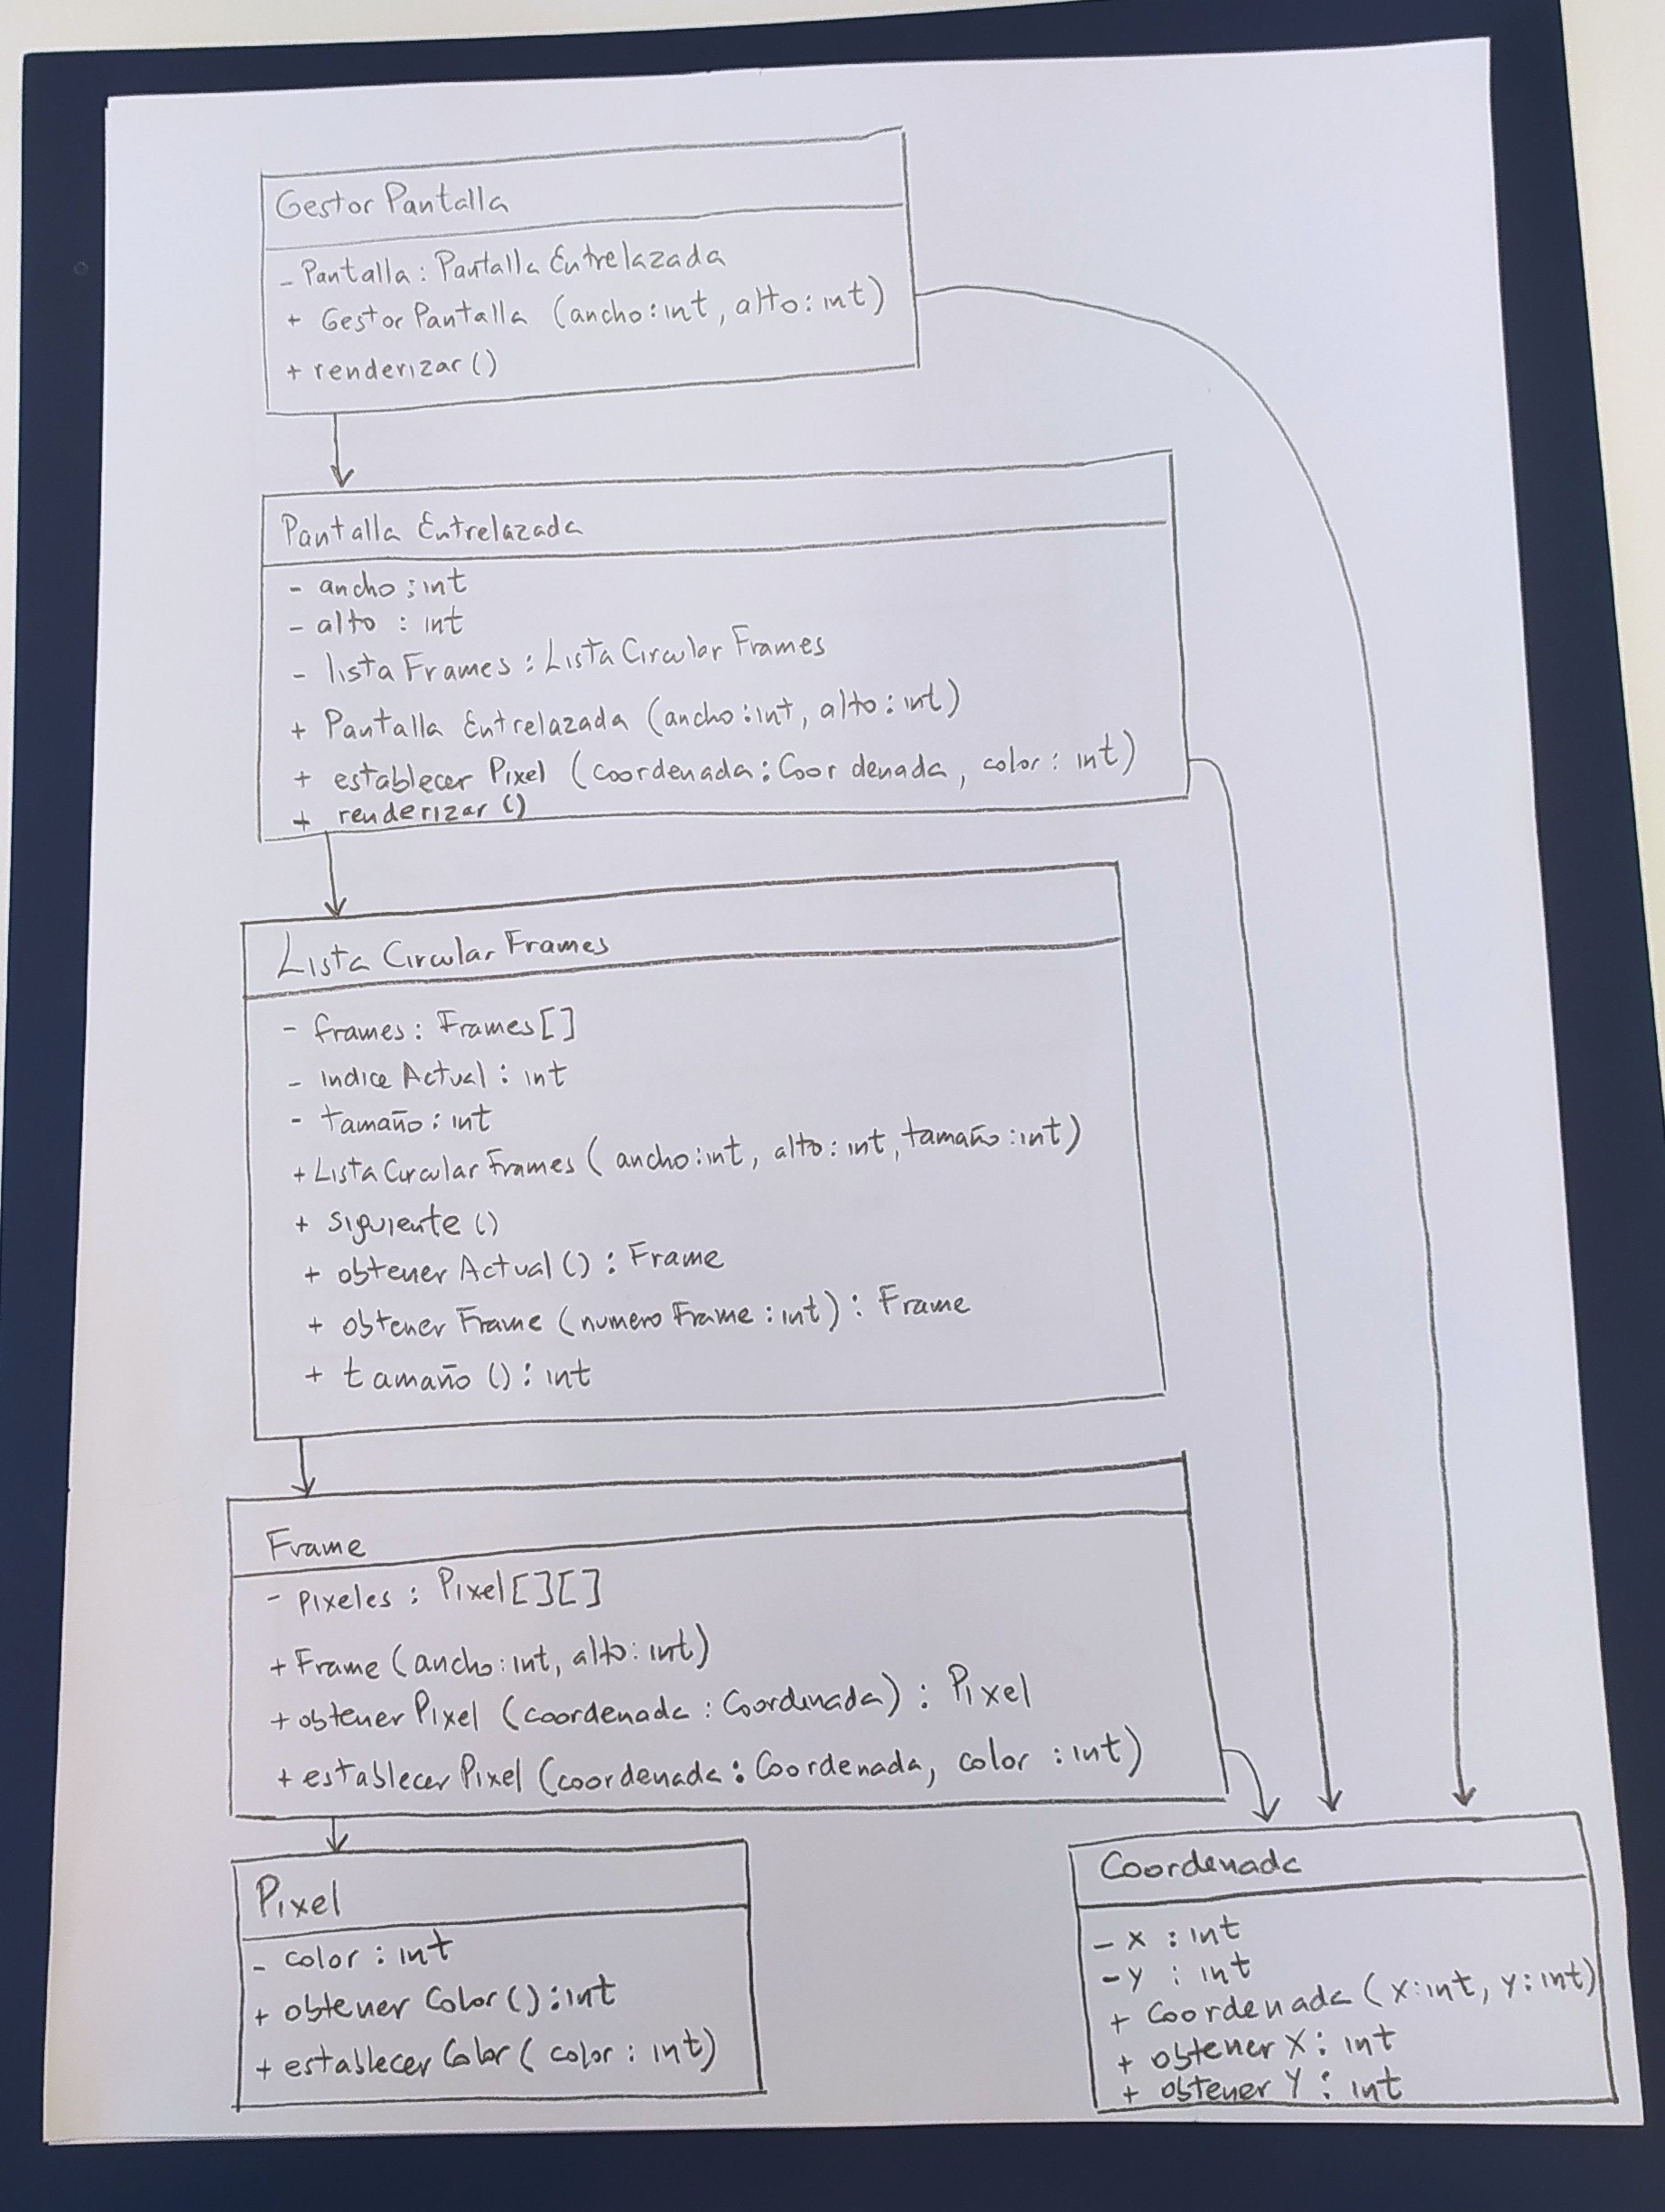 Gestor Pantalla
- Pantalla : Pantalla Entrelazada
+ Gestor Pantalla (ancho : int, alto : int)
+ renderizar ()
Pantalla Entrelazada
- ancho : int
- alto : int
- lista Frames : Lista Circular Frames
+ Pantalla Entrelazada (ancho : int, alto : int)
+ establecer Pixel (coordenada : Coordenada, color : int)
+ renderizar ()
Lista Circular Frames
- frames : Frames[]
- Indice Actual : int
- tamaño : int
+ Lista Circular Frames (ancho : int, alto : int, tamaño : int)
+ siguiente ()
+ obtener Actual () : Frame
+ obtener Frame (numero Frame : int) : Frame
+ tamaño () : int
Frame
- Pixeles : Pixel[][]
+ Frame (ancho : int, alto : int)
+ obtener Pixel (coordenada : Coordenada) : Pixel
+ establecer Pixel (coordenada : Coordenada, color : int)
Pixel
- color : int
+ obtener Color () : int
+ establecer Color (color : int)
Coordenada
- x : int
- y : int
+ Coordenada (x : int, y : int)
+ obtener X : int
+ obtener Y : int